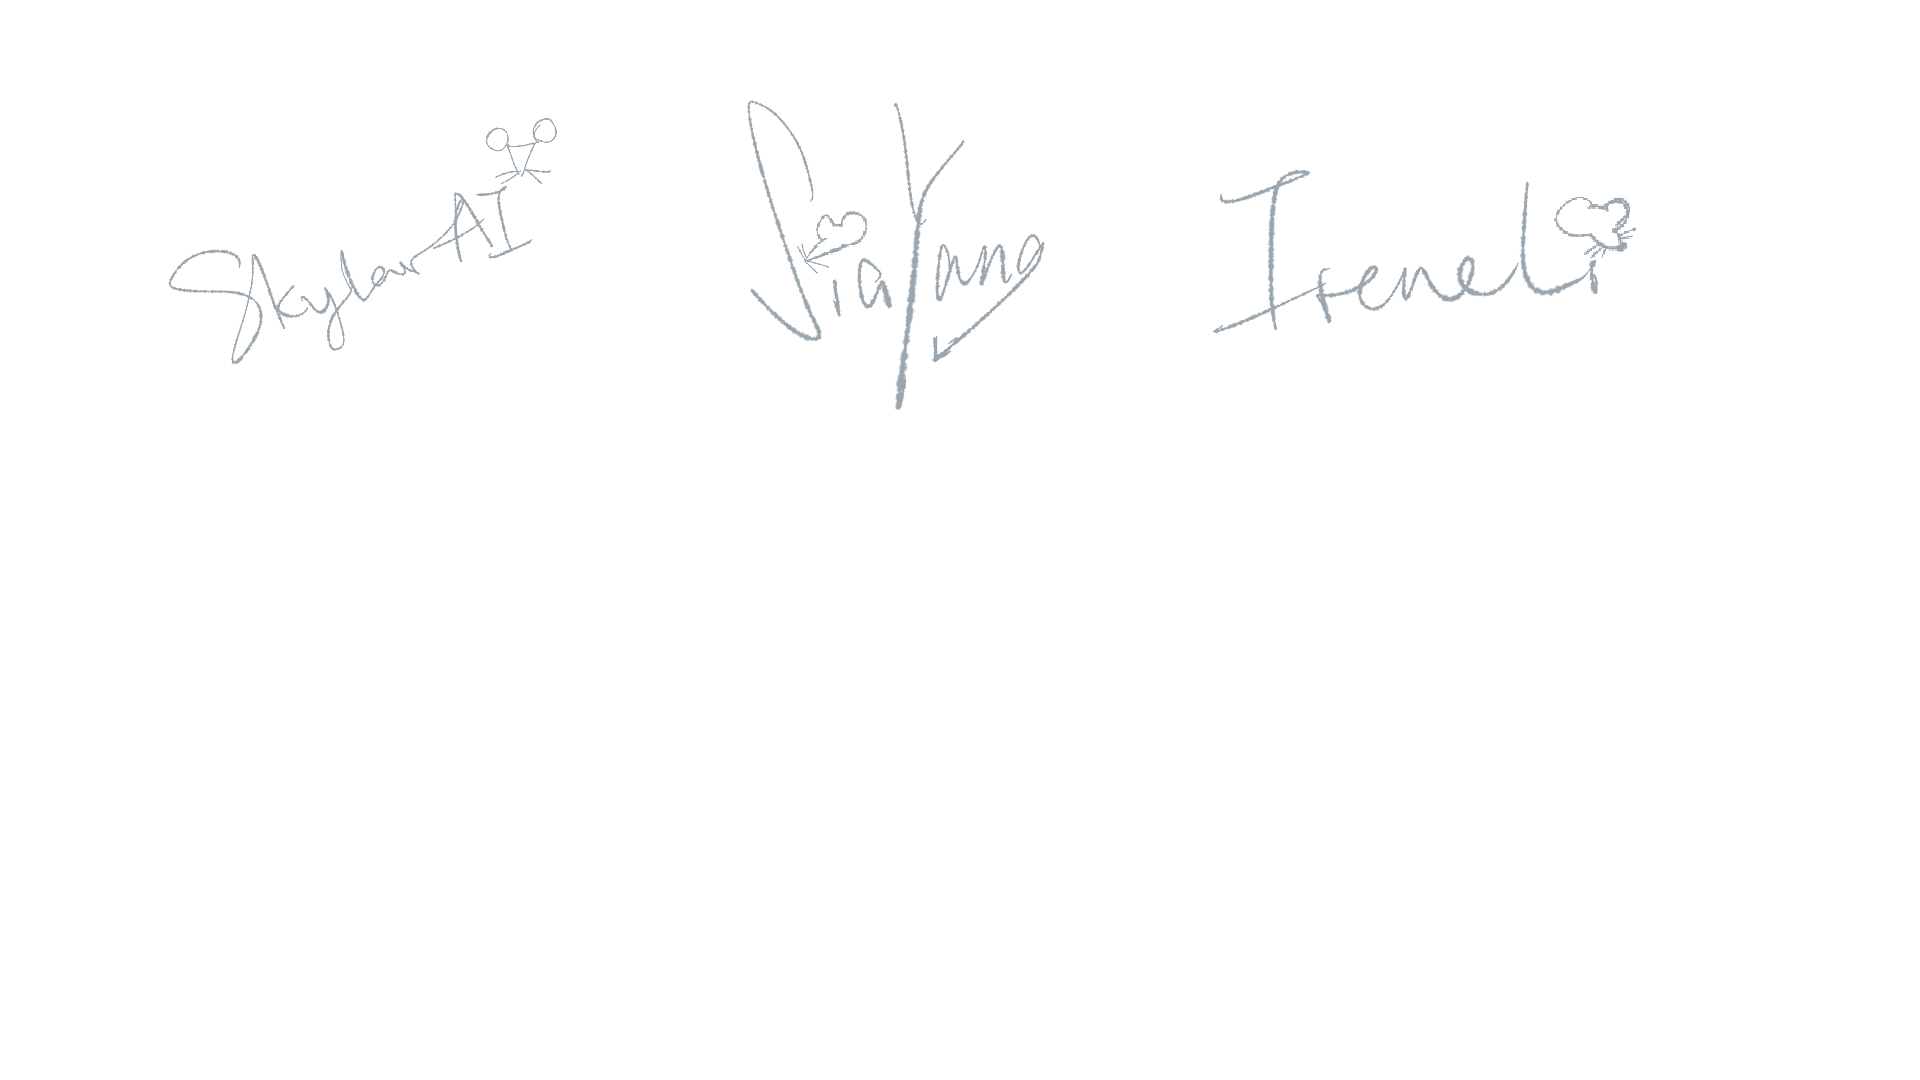 Skylar AI
Sia Yang
Irene Li